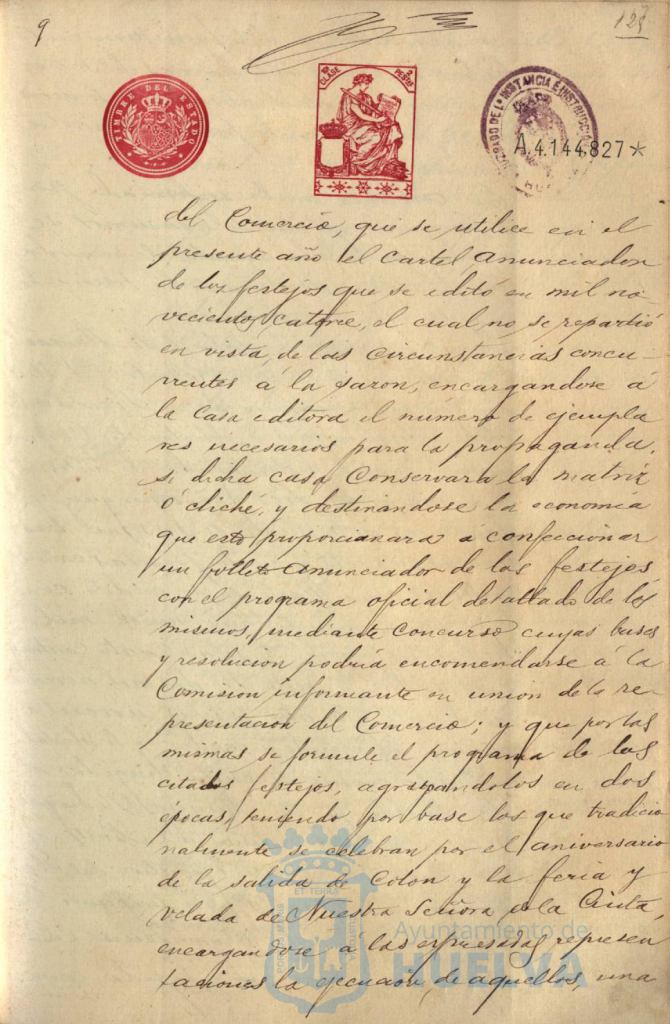 9
125
TIMBRE DEL ESTADO
10ª CLASE 2 PESETAS
JUZGADO DE 1ª INSTANCIA E INSTRUCCIÓN
A.4.144.827*
del Comercio, que se utilice en el
presente año el cartel anunciador
de los festejos que se editó en mil no-
vecientos catorce, el cual no se repartió
en vista, de las circunstancias concu-
rrentes á la sazon, encargandose á
la Casa editora el número de ejempla
res necesarios para la propaganda,
si dicha casa Conservara la matriz
ó cliché, y destinandose la economía
que esto proporcionara á confeccionar
un folleto anunciador de los festejos
con el programa oficial detallado de los
mismos, mediante Concurso cuyas bases
y resolucion podría encomendarse á la
Comision informante en union de la re-
presentacion del Comercio; y que por las
mismas se formule el programa de los
citados festejos, agrupandolos en dos
épocas, teniendo por base los que tradicio
nalmente se celebran por el aniversario
de la salida de Colon y la feria y
velada de Nuestra Señora de la Cinta,
encargandose a las expresadas represen
taciones la ejecución, de aquellos, una
Ayuntamiento de
HUELVA